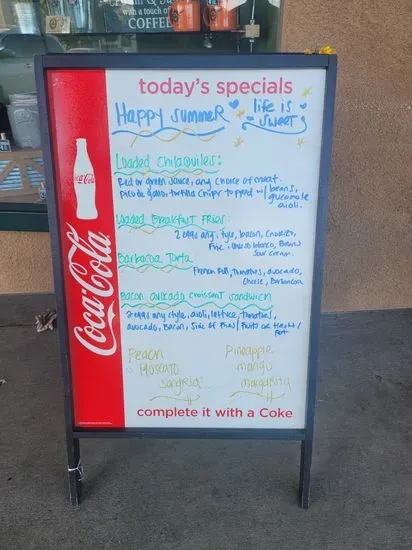 with a touch of
COFFEE
today's specials
Happy summer life is sweet
Loaded Chilaquiles:
Red or green sauce, any choice of meat.
Pico de gallo, tortilla chips topped w/ beans,
guacamole
aioli.
Loaded Breakfast Fries.
2 eggs any style, bacon, chorizo,
Pico, queso blanco, Beans
Sour cream.
Barbacoa Torta
French roll, Tomatoes, avocado,
Cheese, Barbacoa
Bacon avocado croissant sandwich
2 eggs any style, aioli, lettuce, Tomatoes,
avocado, Bacon, side of fries/fruits or
Peach
Muscato
Sangria
Pineapple
mango
margarita
complete it with a Coke
Coca-Cola
Coca-Cola